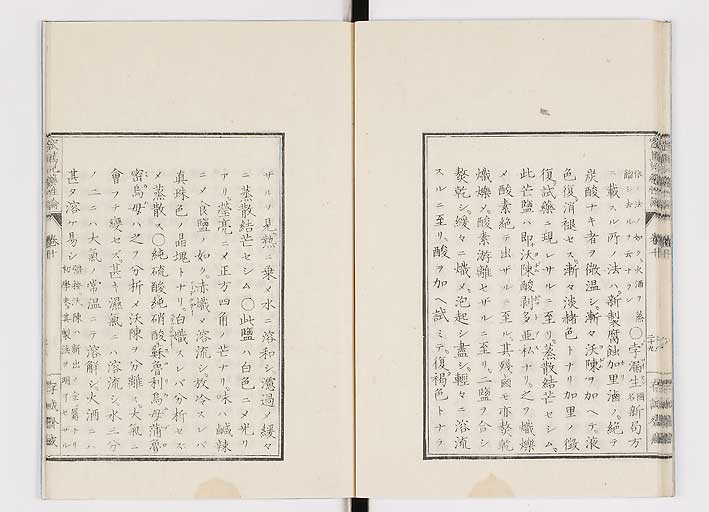 依ノ法ノ如ク火酒ヲ蒸
餾シ去ルヲ云ナラン○字漏生國名新局方
ニ載スル所ノ法ハ新製腐蝕加里滷ノ絶テ
炭酸ナキ者ヲ微温シ漸々沃陳ヲ加ヘテ液
色復消褪セス漸々淡赭色トナリ加里ノ徴
復試藥ニ現レサルニ至リ蒸散結芒セシム
此芒鹽ハ即沃陳酸剥多亜私ナリ之ヲ熾爍
メ酸素絶テ出ザルニ至ル其殘國モ亦熬乾
熾爍ノ酸素游離セザルニ至リ二鹽ヲ合シ
熬乾シ緩々ニ熾メ泡起シ盡シ輕々ニ溶流
スルニ至リ酸ヲ加ヘ試ミテ復褐色トナラ
ザルヲ見熱ニ乗メ水ニ溶和シ濾過メ緩々
ニ蒸散結芒セシム○此鹽ハ白色ニメ光リ
アリ瑩亮ニメ正方四角ノ芒ナリ味ハ鹹辣
ニメ食鹽ノ如ク赤熾メ溶流シ放冷スレバ
真珠色ノ晶塊トナリ白熾スレバ分析セズ
メ蒸散ス○純硫酸純硝酸蘇魯利烏母蒲魯
密烏母ハ之ヲ分析メ沃陳ヲ分離ス大氣ニ
會フテ變セズ甚キ濕氣ニハ溶流シ水三分
ノ二ニハ大氣ノ常温ニテ溶解シ火酒ニハ
甚タ溶ケ易シ
卷十
卷十